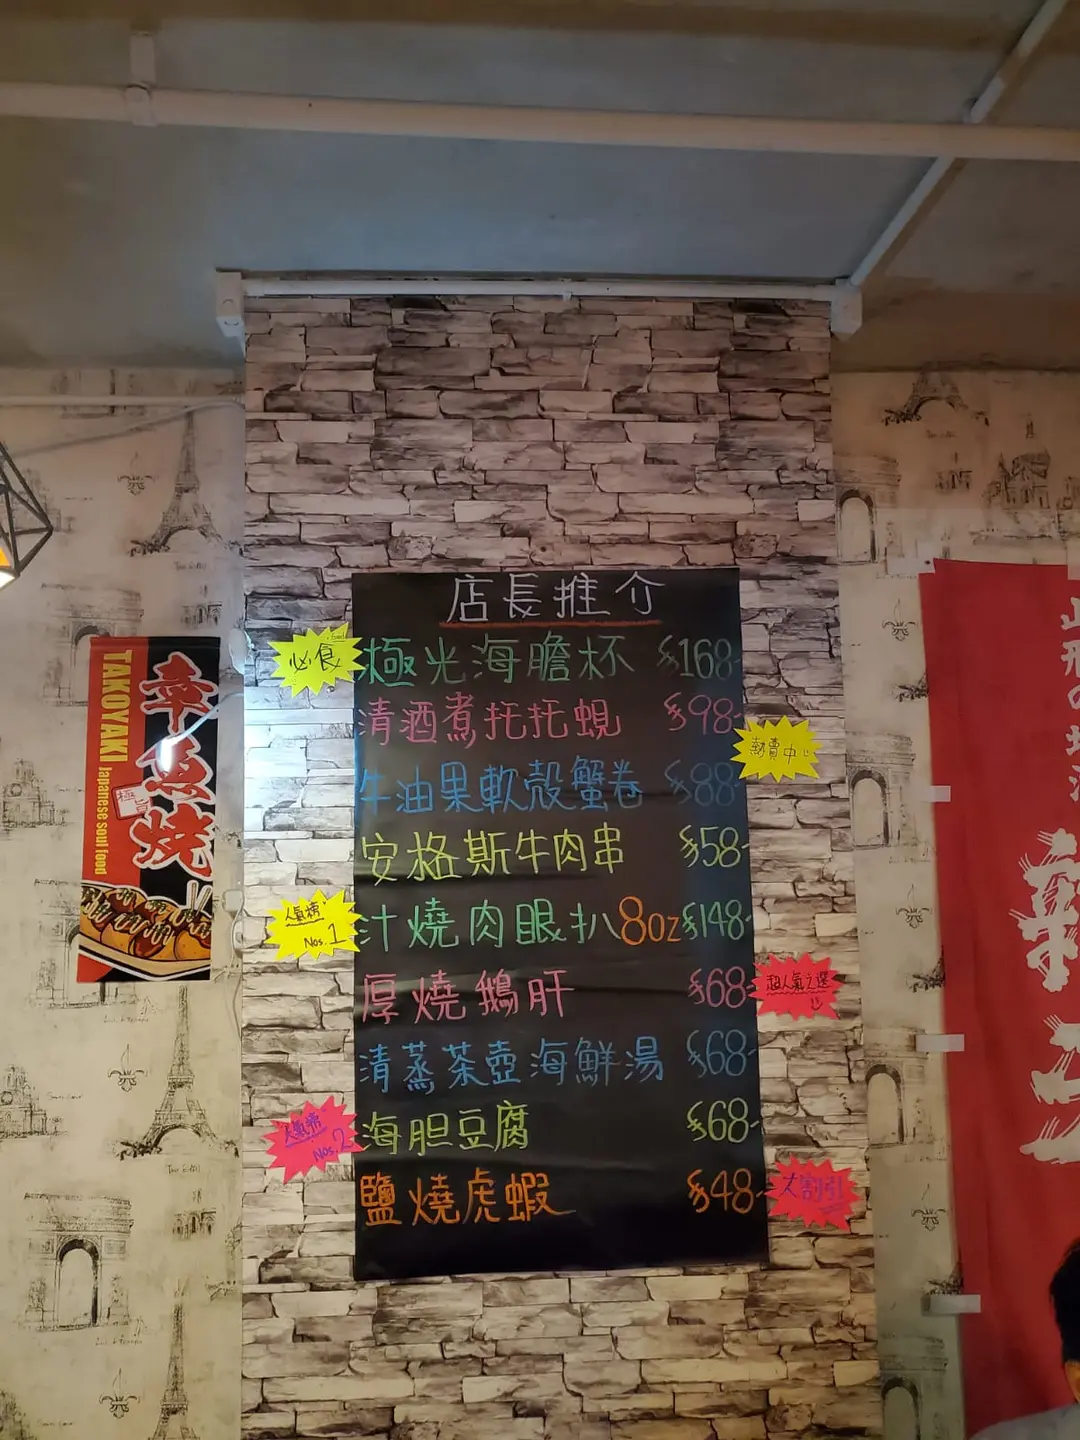 店長推介
必食
極光海膽杯 $168-
清酒煮托托蜆 $98-
熱賣中
牛油果軟殼蟹卷 $88-
安格斯牛肉串 $58-
人氣榜
Nos.1
汁燒肉眼扒8oz $148-
厚燒鵝肝 $68-
超人氣之選
清蒸茶壺海鮮湯 $68-
人氣榜
Nos.2
海胆豆腐 $68-
鹽燒虎蝦 $48-
大割引
章魚燒
極旨
TAKOYAKI Japanese soul food
山形の地酒